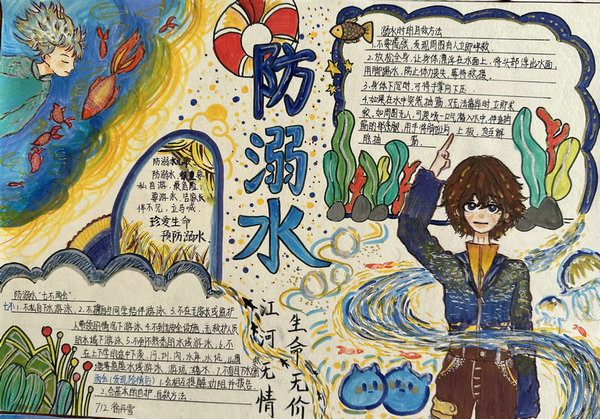 防溺水
溺水时的自救方法
1.不要慌张,发现周围有人立即呼救
2.放松全身,让身体漂浮在水面上,将头部浮出水面,
用脚踢水,防止体力丧失,等待救援。
3.身体下沉时,可将手掌向下压
4.如果在水中突然抽筋,又无法靠岸时,立即求
救,如周围无人,可深吸一口气潜入水中,伸直抽
筋的那条腿,用手将脚趾向上扳,以解
除抽筋
防溺水
防溺水,很重要
私自游,最危险
要游泳,告家长
伴不见,立马喊
珍爱生命
预防溺水
防溺水"七不两会"
七不:1.不私自下水游泳 2.不擅自与同学结伴游泳 3.不在无家长或监护
人带领的情况下游泳 4.不到无安全设施、无救护人员
的水域下游泳 5.不到不熟悉的水域游泳 6.不
在上下学的途中下 河到沟水
水域游泳 7.不
1.会相互提醒劝阻并报告
2.会基本的自护自救方法
江河无情
生命无价
712